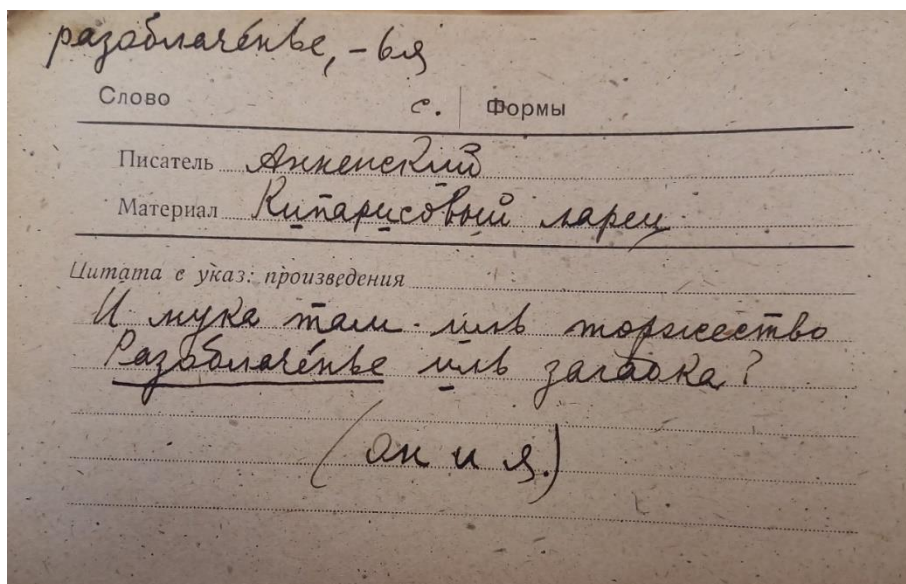 разоблаче́нье, -ья
Слово с. Формы
Писатель Анненский
Материал Кипарисовый ларец
Цитата с указ. произведения
И мука там иль торжество
Разоблаче́нье иль загадка?
(он и я.)